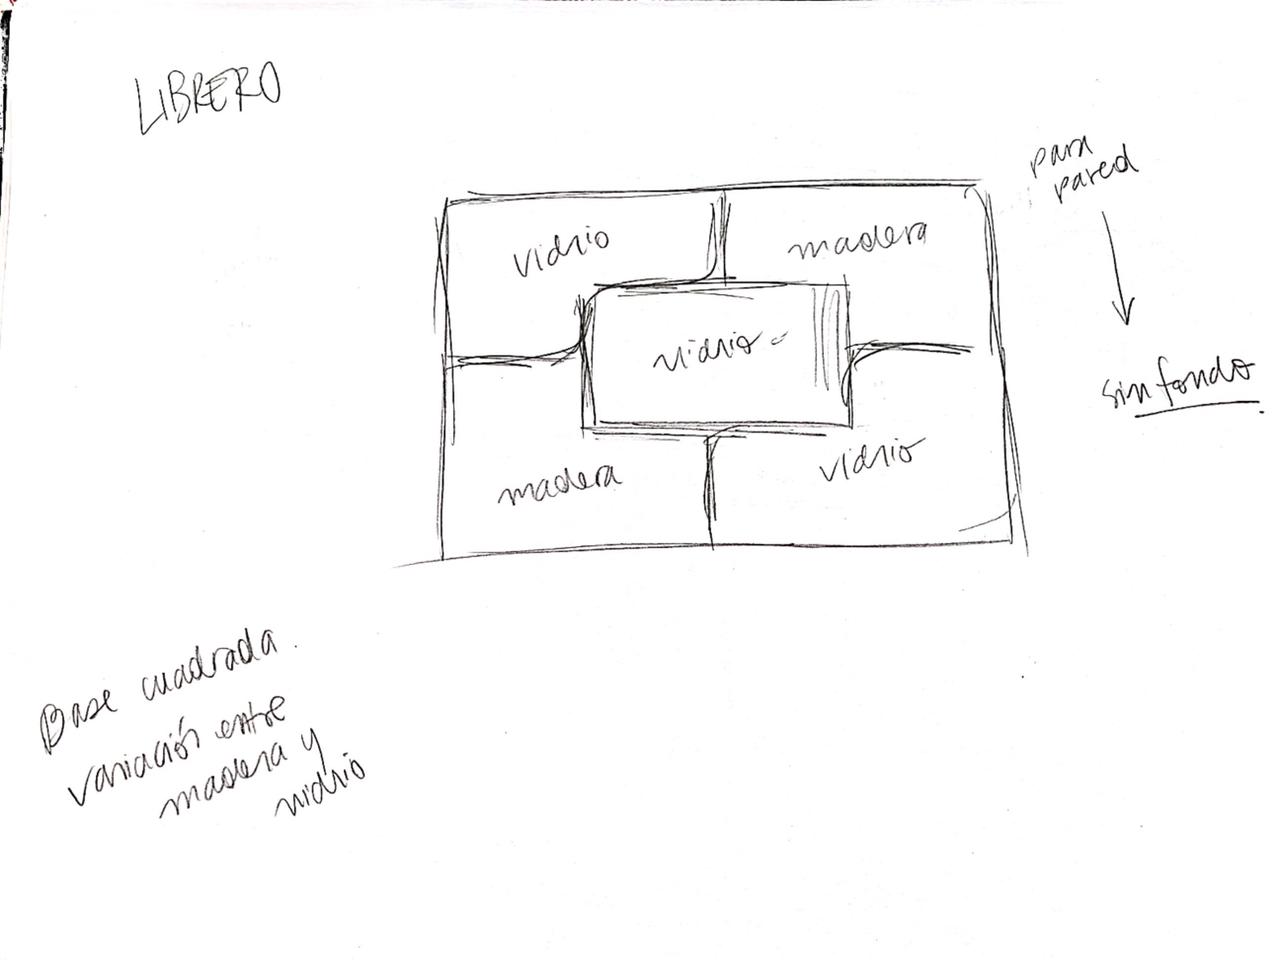 LIBRERO
para
pared
vidrio
madera
vidrio
sin fondo
madera
vidrio
Base cuadrada.
variación entre
madera y
vidrio